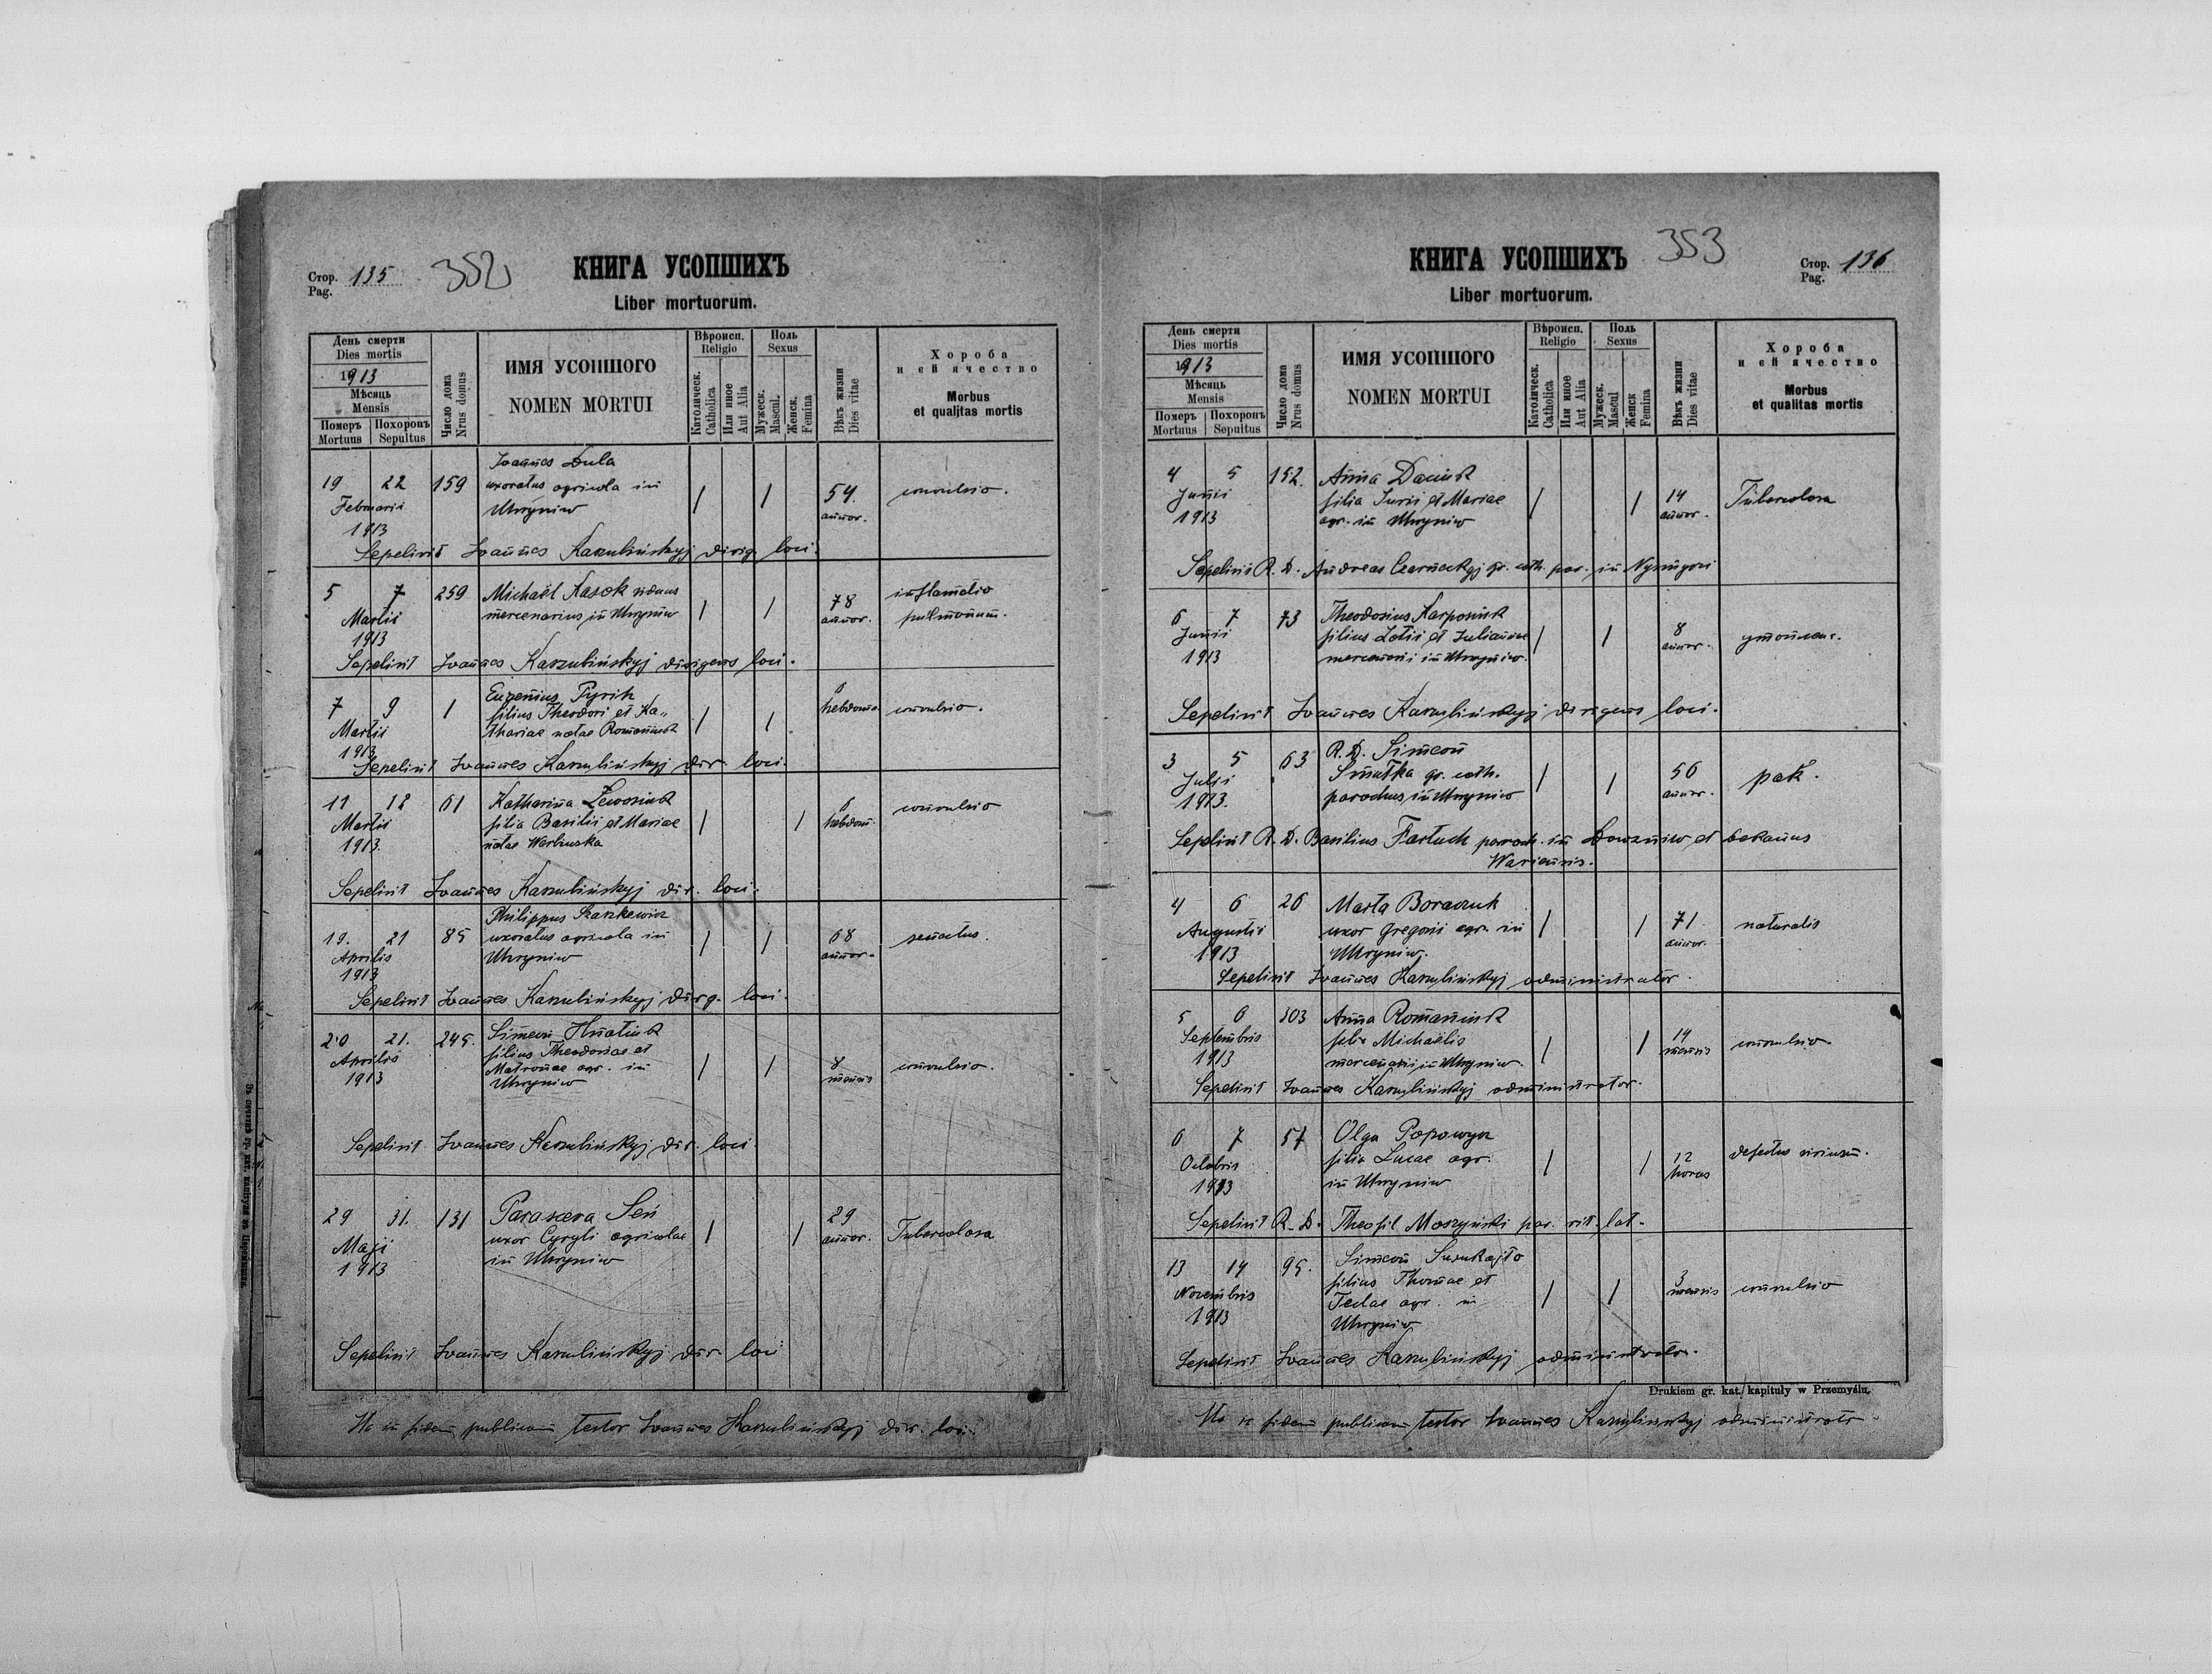 Стор. 135
Pag.
352
КНИГА УСОПШИХЪ
Liber mortuorum.
День смерти
Dies mortis
1913
Мѣсяць
Mensis
Померъ
Mortuus
Похоронъ
Sepultus
Число дома
Nrus domus
ИМЯ УСОПШОГО
NOMEN MORTUI
Вѣроисп.
Religio
Католическ.
Catholica
Или иное
Aut Alia
Поль
Sexus
Мужеск.
Mascul.
Женск.
Femina
Вѣкъ жизни
Dies vitae
Хороба
и єй ячество
Morbus
et qualitas mortis
19 22 159 Joannes Dula
uxoratus agricola in
Uhryniw
Februarii
1913
54 annor.
convulsio.
Sepelivit Joannes Karzulińskyj dirig. loci.
5 7 259 Michael Kasok viduus
mercenarius in Uhryniw
Martii
1913
78 annor.
inflamatio
pulmonum.
Sepelivit Joannes Karzulińskyj dirigens loci.
7 9 1 Eugenius Pyrih
filius Theodori et Ka„
thariae natae Romaniuk
Martii
1913
6 hebdom.
convulsio.
Sepelivit Joannes Karzulińskyj dir. loci.
11 12 61 Katharina Leworiuk
filia Basilii et Mariae
natae Werbuska
Martii
1913.
6 hebdom.
convulsio
Sepelivit Joannes Karzulińskyj dir. loci.
19. 21 85 Philippus Szaszkewicz
uxoratus agricola in
Uhryniw
Aprilis
1913
68 annor.
senectus.
Sepelivit Joannes Karzulińskyj dirig. loci.
20 21. 245. Simeon Hnatiuk
filius Theodosiae et
Matronae agr. in
Uhryniw
Aprilis
1913
8 mensis
convulsio.
Sepelivit Joannes Karzulińskyj dir. loci.
29 31. 131 Parasceva Seń
uxor Cyryli agricolae
in Uhryniw
Maji
1913
29 annor.
Tuberculosa
Sepelivit Joannes Karzulińskyj dir. loci
in fidem publicam testor Joannes Karzulińskyj dir. loci.
КНИГА УСОПШИХЪ
353
Стор. 136
Pag.
Liber mortuorum.
День смерти
Dies mortis
1913
Мѣсяць
Mensis
Померъ
Mortuus
Похоронъ
Sepultus
Число дома
Nrus domus
ИМЯ УСОПШОГО
NOMEN MORTUI
Вѣроисп.
Religio
Католическ.
Catholica
Или иное
Aut Alia
Поль
Sexus
Мужеск.
Mascul
Женск
Femina
Вѣкъ жизни
Dies vitae
Хороба
и єй ячество
Morbus
et qualitas mortis
4 5 152. Anna Daciuk
filia Jurii et Mariae
agr. in Uhryniw
Junii
1913
14 annor.
Tuberculosa
Sepelivit R. D. Andreas Czarneckyj gr. cath. par. in
6 7 73 Theodosius Karponiuk
filius Zotii et Julianne
mercenarii in Uhryniw.
Junii
1913
8 annor.
утоплене.
Sepelivit Joannes Karzulińskyj dirigens loci.
3 5 63 R. D. Simeon
Smutka gr. cath.
parochus in Uhryniw
Julii
1913.
56 annor.
рак.
Sepelivit R. D. Basilius Fartuch paroch. in et decanus
4 6 26 Marta Boraczuk
uxor Gregorii agr. in
Uhryniw.
Augustii
1913
71 annor.
naturalis
Sepelivit Joannes Karzulińskyj administrator.
5 6 103 Anna Romaniuk
filia Michaëlis
mercenarii in Uhryniw.
Septembris
1913
14 mensis
convulsio.
Sepelivit Joannes Karzulińskyj administrator.
6 7 57 Olga Popowycz
filia Lucae agr.
in Uhryniw
Octobris
1913
12 horas
defectus virium.
Sepelivit R. D. Theofil Moszyński par. rit. lat.
13 14 95. Simeon Suszkajło
filius Thomae et
Teclae agr. in
Uhryniw
Novembris
1913
3 mensis
convulsio
Sepelivit Joannes Karzulińskyj administrator.
Drukiem gr. kat. kapituły w Przemyślu.
in fidem publicam testor Joannes Karzulińskyj administrator.